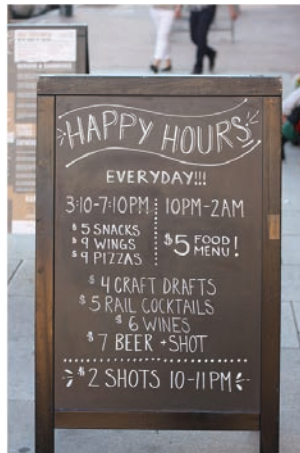 HAPPY HOURS
EVERYDAY!!!
3:10-7:10PM
$5 SNACKS
$9 WINGS
$9 PIZZAS
10PM-2AM
$5 FOOD MENU!
$4 CRAFT DRAFTS
$5 RAIL COCKTAILS
$6 WINES
$7 BEER + SHOT
$2 SHOTS 10-11PM